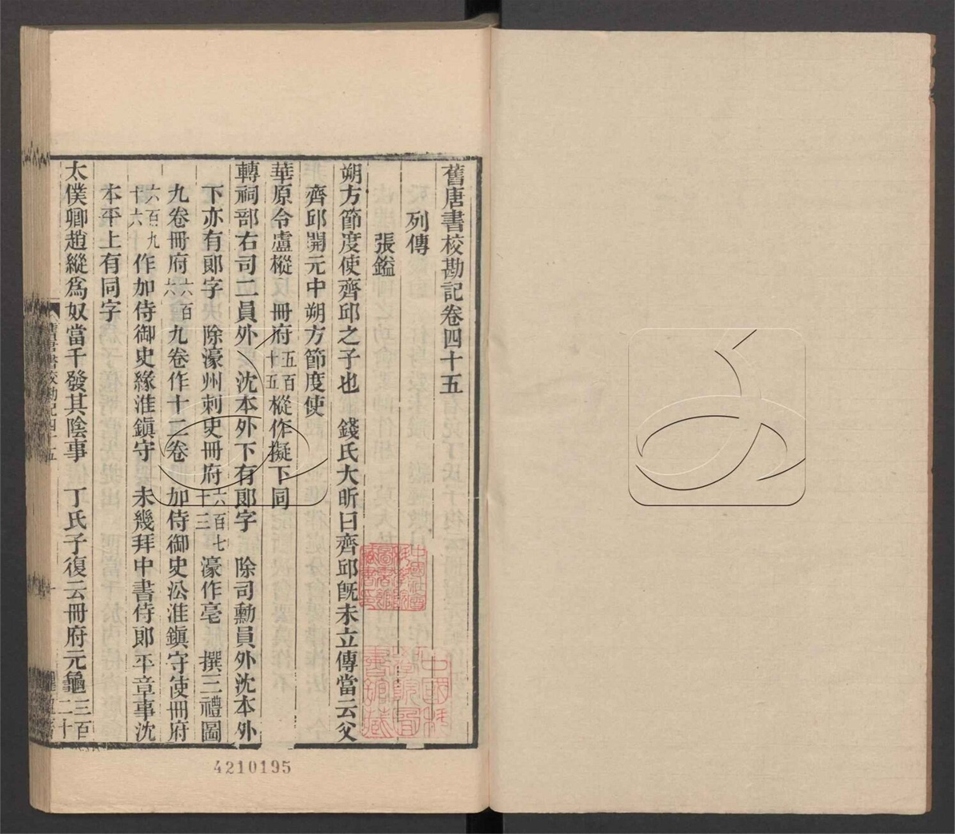 舊唐書校勘記卷四十五
列傳
張鎰
朔方節度使齊邱之子也　錢氏大昕曰齊邱旣未立傳當云父
齊邱開元中朔方節度使
華原令盧樅　冊府五百十五樅作擬下同
轉祠部右司二員外　沈本外下有郞字　除司勳員外沈本外
下亦有郞字　除濠州刺史冊府六百七十三濠作亳　撰三禮圖
九卷冊府六百六九卷作十二卷　加侍御史㳂淮鎭守使冊府
六百九十六作加侍御史緣淮鎭守　未幾拜中書侍郞平章事沈
本平上有同字
太僕卿趙縱爲奴當千發其陰事　丁氏子復云冊府元龜三百二十
4210195